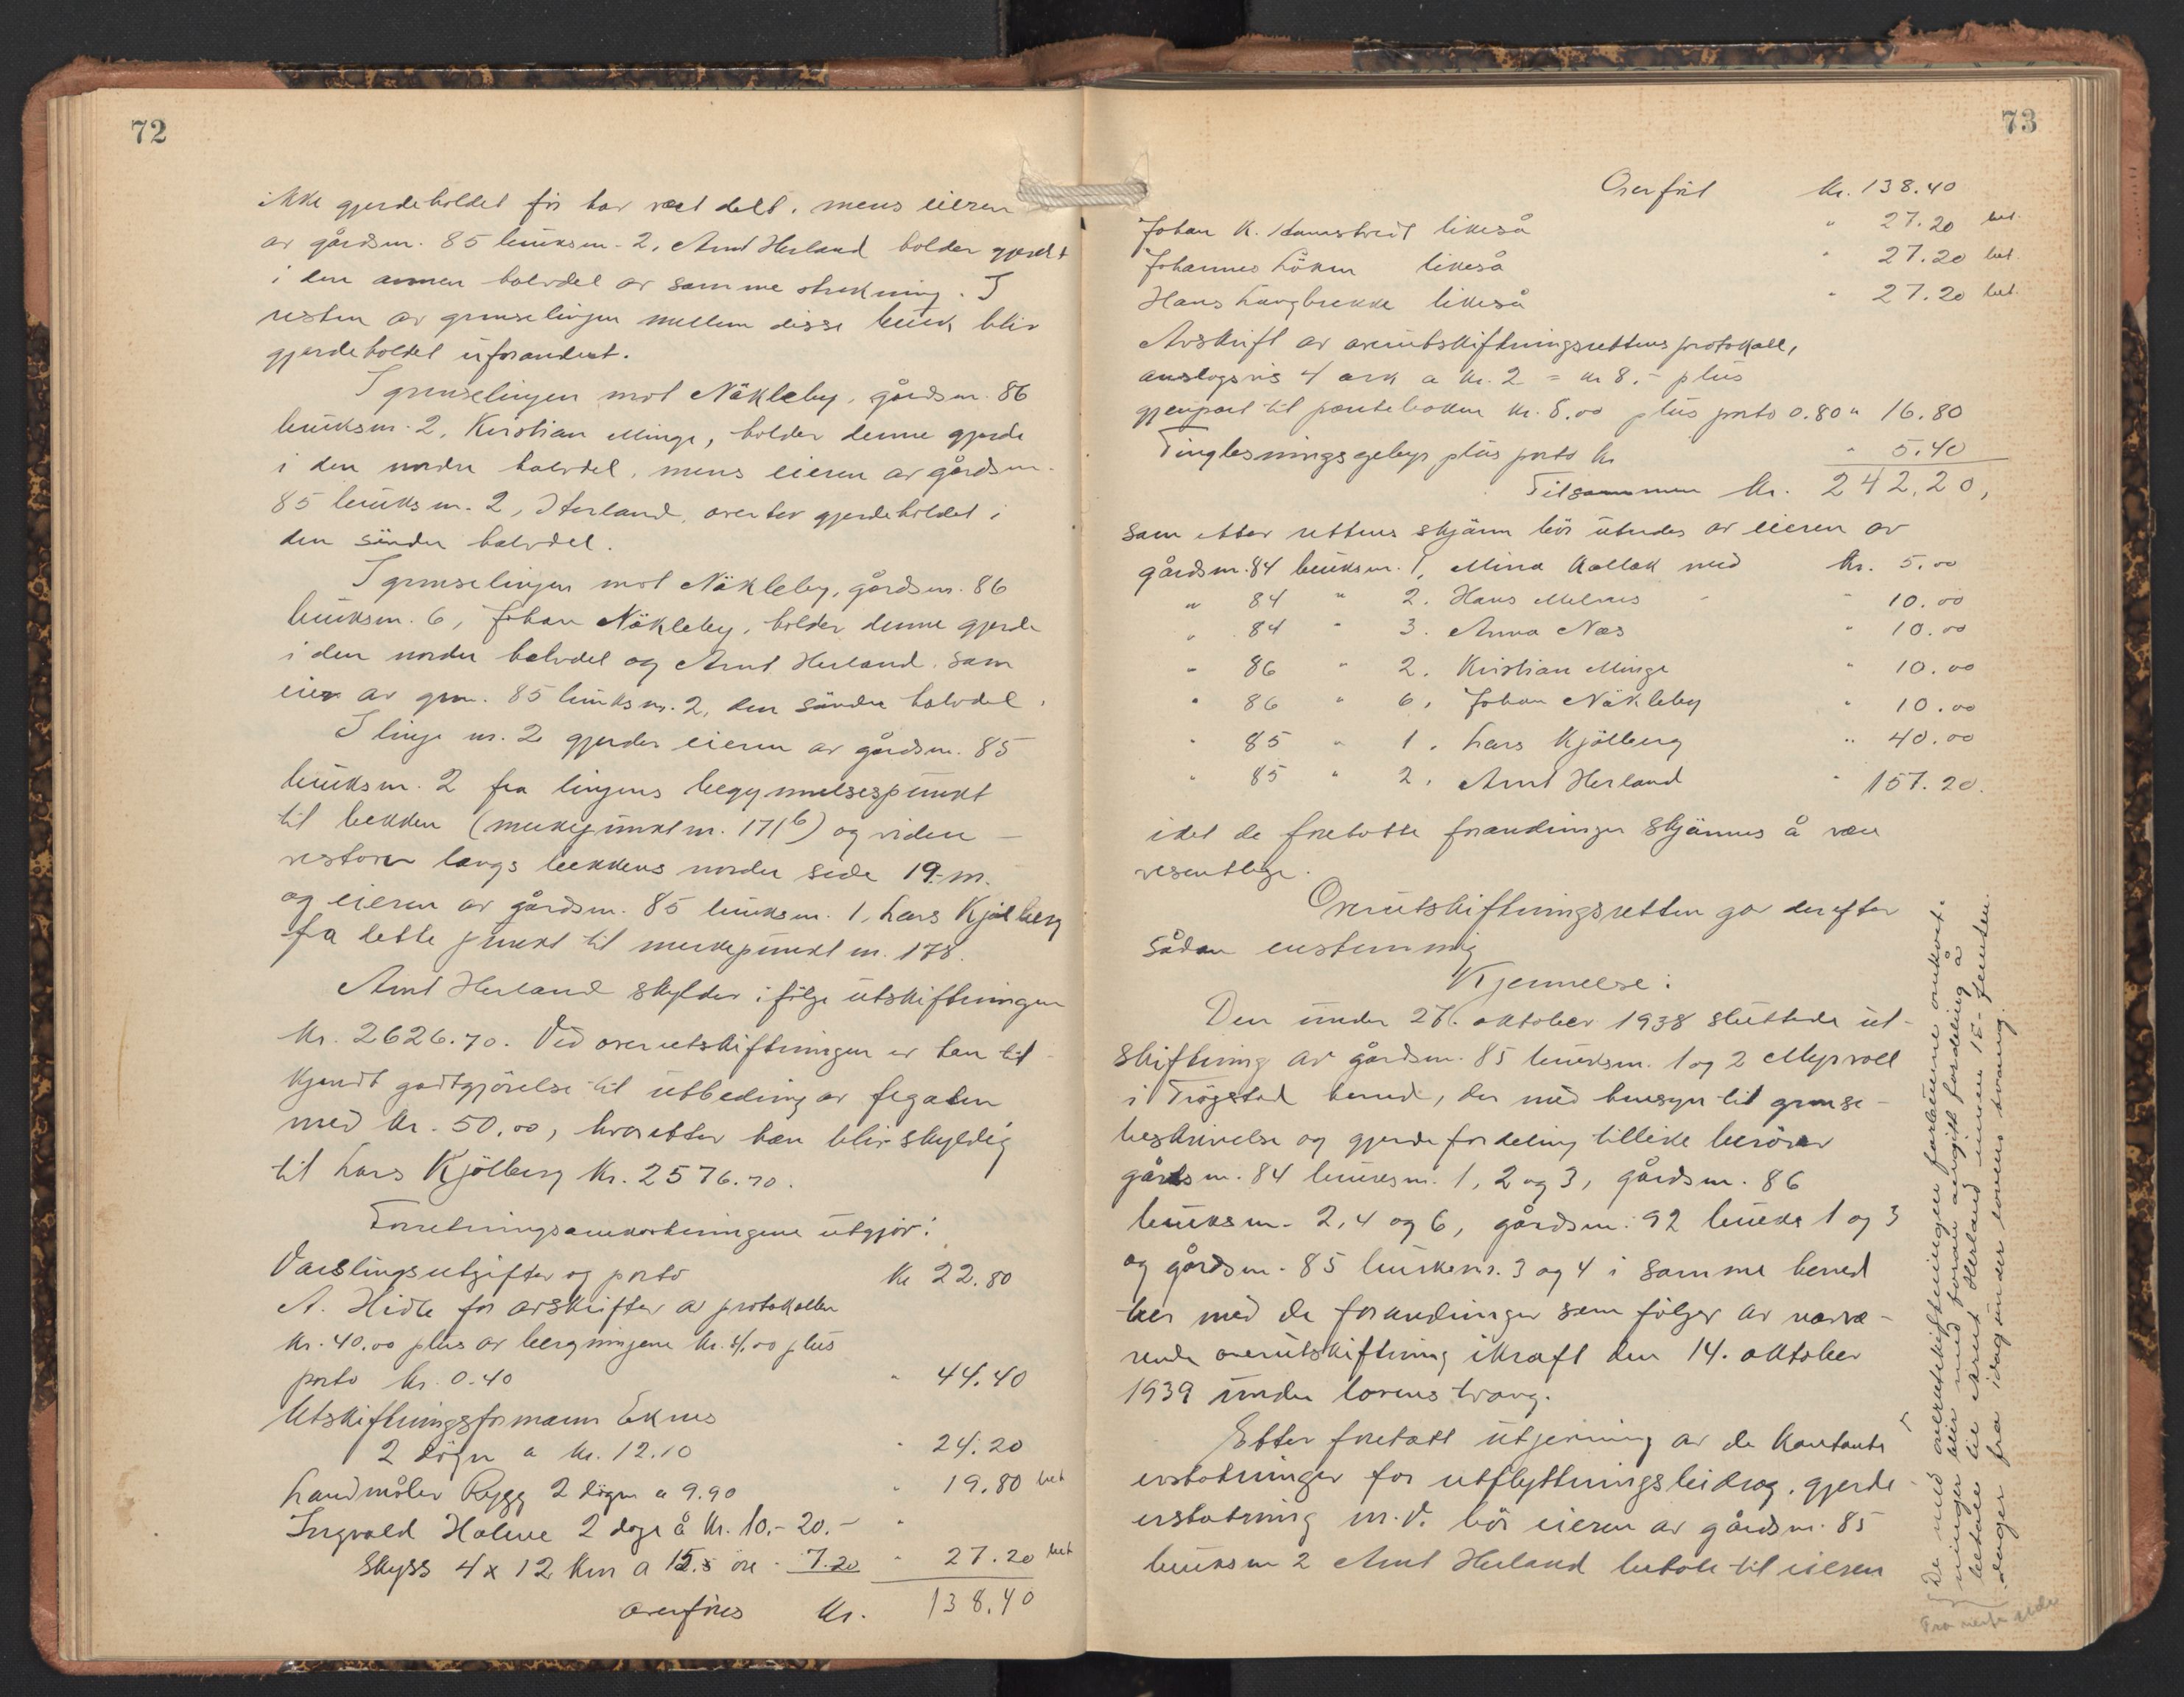 72
ikke gjerdeholdet før har vært delt, mens eieren
av gårdsnr. 85 bruksnr. 2, Arnt Herland holder gjerdet
i den annen halvdel av samme strekning. I
resten av grenselinjen mellem disse bruk blir
gjerdeholdet uforandret.
I grenselinjen mot Näkleby, gårdsnr. 86
bruksnr. 2, Kristian Minge, holder denne gjerde
i den nordre halvdel, mens eieren av gårdsnr.
85 bruksnr. 2, Herland, overtar gjerdeholdet i
den søndre halvdel.
I grenselinjen mot Näkleby, gårdsnr. 86
bruksnr. 6, Johan Näkleby, holder denne gjerde
i den nordre halvdel og Arnt Herland, som
eier av gnr. 85 bruksnr. 2, den söndre halvdel.
I linje nr. 2 gjerder eieren av gårdsnr. 85
bruksnr. 2 fra linjens begynnelsespunkt
til bekken (merkepunkt nr. 171⁶) og videre
vestover langs bekkens nordre side 19 m.
og eieren av gårdsnr. 85 bruksnr. 1, Lars Kjölberg
fra dette punkt til merkepunkt nr. 178.
Arnt Herland skylder i følge utskiftningen
Kr. 2626.70. Ved overutskiftningen er han til-
kjendt godtgjörelse til utbedring av fegaten
med Kr. 50,00, hvoretter han blir skyldig
til Lars Kjölberg Kr. 2576.70.
Forretningsomkostningene utgjör:
Varslingsutgifter og porto Kr 22.80
A. Hidle for avskrifter av protokollen
Kr. 40.00 plus av beregningene Kr. 4,00 plus
porto Kr. 0.40 " 44.40
Utskiftningsformann Eknes
2 døgn a Kr. 12.10 " 24.20
Landmåler Rygg 2 døgn a 9.90 " 19.80 bet
Ingvald Holme 2 dage å Kr. 10.- 20.- "
Skyss 4 x 12 km a 15 øre - 7.20 " 27.20 bet
Overføres Kr. 138.40
73
Overført Kr. 138.40
Johan K. Hamstvedt likeså " 27.20 bet.
Johannes Løken likeså " 27.20 bet.
Hans Langbrekke likeså " 27.20 bet.
Avskrift av overutskiftningsrettens protokoll,
anslagsvis 4 ark a Kr. 2 = Kr 8.- plus
gjenpart til panteboken Kr. 8.00 plus porto 0.80 " 16.80
Tinglesningsgebyr plus porto Kr " 5.40
Tilsammen Kr. 242.20,
som etter rettens skjönn bör utredes av eieren av
gårdsnr. 84 bruksnr. 1, Mina Kallak med Kr. 5.00
" 84 " 2. Hans Melnes - " 10.00
" 84 " 3. Anna Næs " 10.00
" 86 " 2. Kristian Minge " 10.00
" 86 " 6, Johan Näkleby " 10.00
" 85 " 1. Lars Kjölberg " 40.00
" 85 " 2. Arnt Herland " 157.20.
idet de foretatte forandringer skjønnes å være
vesentlige.
Overutskiftningsretten gav derefter
sådan enstemmig
Kjennelse:
Den under 27. oktober 1938 sluttede ut-
skiftning av gårdsnr. 85 bruksnr. 1 og 2 Myrvoll
i Trøgstad herred, der med hensyn til grense-
beskrivelse og gjerdefordeling tillike berörer
gårdsnr. 84 bruksnr. 1, 2 og 3, gårdsnr. 86
bruksnr. 2, 4 og 6, gårdsnr. 92 bruks 1 og 3
og gårdsnr. 85 bruksnr. 3 og 4 i samme herred
trer med de forandringer som følger av nærvæ-
rende overutskiftning i kraft den 14. oktober
1939 under lovens tvang.
Etter foretatt utjevning av de kontante
erstatninger for utflytningsbidrag, gjerde-
erstatning m.v. bör eieren av gårdsnr. 85
bruksnr 2 Arnt Herland betale til eieren
De med overutskiftningen forbundne omkost-
ninger blir med foran angitt fordeling å
betale til Arnt Herland innen 15 - femten
dager fra idag under lovens tvang.
Fra neste side